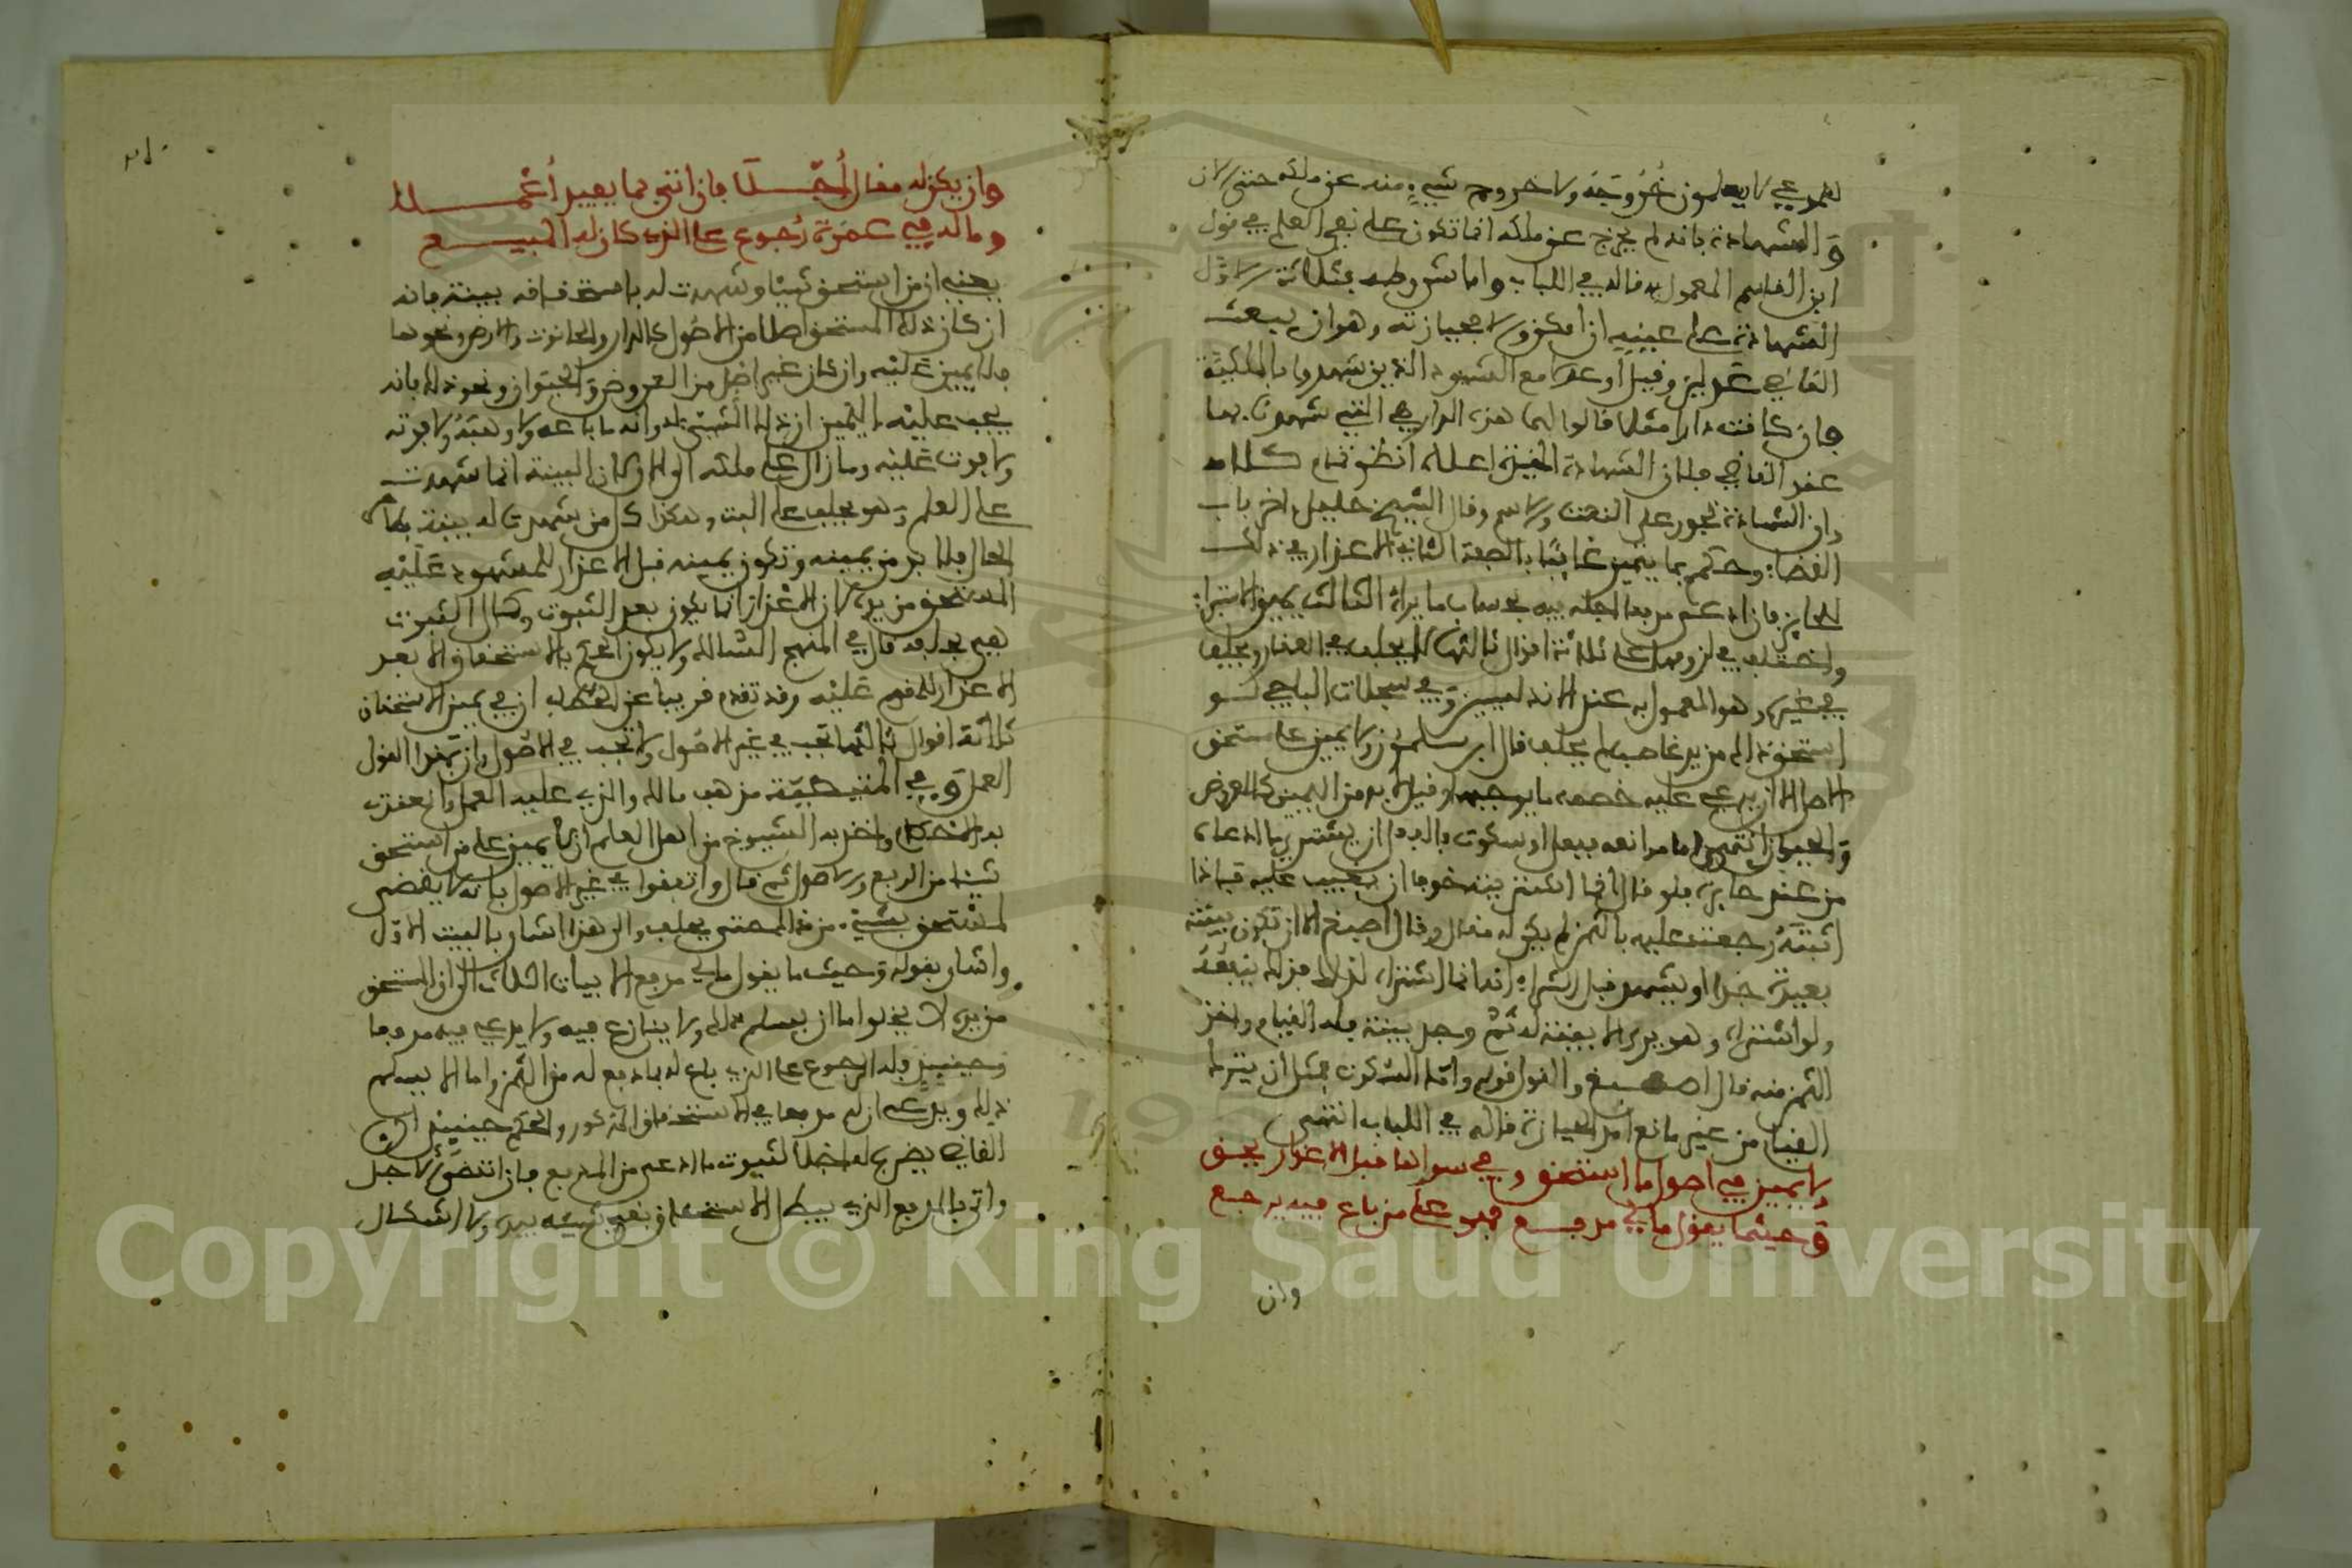 للمدعي لا يعلمون خُرُوجَهُ ولا خروج شيءٍ منه عن ملكه حتى الآن
وَالشهادة بأنه لم يخرج عن ملكه إنما تكون على نفي العلم في قول
ابن القاسم المعمول به قاله في اللباب وأما شروطه فثلاثة الأول
الشهادة على عينه إن أمكن وإلا فحيازته وهو أن يبعث
القاضي عدلين وقيل أو عدلا مع الشهود الذين شهدوا بالملكية
فإن كانت دارا مثلا قالوا لهما هذه الدار هي التي شهدنا بها
عند القاضي
وان الشهادة تجوز على النعت والاسم وقال الشيخ خليل ءاخر باب
القضاء وحكم بما يتميز غائبًا بالصفة الثاني الإعذار في ذلك
للحايز فإن ادعى مدفعا أجله فيه بحسب ما يراه الثالث يمين الاستبراء
واختلف في لزومها على ثلاثة أقوال ثالثها لا يحلف في العقار ويحلف
في غيره وهو المعمول به عند الأندلسيين وَفي سجلات الباجي لو
استحق ذلك من يد غاصب لم يحلف قال ابن سلمون ولا يمين على مستحق
الأصل إلا أن يدعي عليه خصمه ما يوجبها وقيل لا بد من اليمين كالعروض
وَالحيوان انتهى وأما موانعه ففعل أو سكوت فالفعل أن يشتري ما ادعاه
من عند حايزه فلو قال إنما اشتريته خوفا أن يغيب عليه فإذا
اثبتّهُ رجعت عليه بالثمن لم يكن له مقال وقال أصبغ إلا أن تكون بينته
بعيدة جدا أو يشهد قبل الشراء أنه إنما اشتراه لذلك فذلك ينفعُهُ
ولو اشتراه وهو يرى ألا بينة له ثمّ وجد بينة فله القيام وأخذ
الثمن منه قال أصبغ والقول قوله وأمّا السكوت فمثل أن يترك
القيام من غير مانع أمد الحيازة قاله في اللباب انتهى
لا يمين في أصول ما استحق وفي سواها قبل الاعذار يحق
وَحيثما يقول مالي مدفع فهو على من باع منه يرجع
وان
وان يكن له مقال أُجّلَا فإن أتى بما يفيد أُعْمِلا
وما له في عجزه رُجوع على الذي كان له المبيع
يعني أن من استحق شيئا وشهدت له باستحقاقه بينة فإنه
إن كان ذلك المستحق أصلا من الأصول كالدار والحانوت والأرض ونحوها
فلا يمين عَليْه وان كان غير أصل من العروض وَالحيَوان ونحو ذلك فإنه
يجب عليْه اليمين أن ذلك الشيئ له وانه ما باعه ولا وهَبَهُ ولا فوته
ولا فوت عَليْه وما زال على ملكه إلى الآن لأن البينة إنما شهدت
على العلم وَهو يحلف على البت وهكذا كل من شهدت له بينة بظاهر
الحال فلا بد من يمينه وتكون يمينه قبل الاعذار للمشهود عَليْه
المستحق من يده لأن الإعذار إنما يكون بعد الثبوت وكمال الثبوت
هي يمينه قال في المنهج السالك ولا يكون الحكم بالاستحقاق إلا بعد
الاعذار للمقوم عَليْه وقد تقدم قريبا عن الحطاب أن في يمين الاستحقاق
ثلاثة أقوال ثالثها تجب في غير الأصُول ولا تجب في الأصُول وان بهذا القول
العمل وَفي المتيطيّة مذهب مالك والذي عليه العمل وانعقدت
به الأحكام وأخذ به الشيوخ من أهل العلم أن لا يمين على من استحق
شيئا من الربع والأصول ثم قال واتفقوا في غير الأصول بأنه لا يقضى
لمستحق بشيء من ذلك حتى يحلف والى هذا اشار بالبيت الأوّل
واشار بقوله وَحيث ما يقول مالي مدفع الأبيات الثلاث إلى أن المستحق
من يده لا يخلو إما أن يسلم ذلك ولا ينازع فيه ولا يدعي فيه مدفعا
وحينيذٍ فله الرجوع على الذي باع له بما دفع له من الثمن وإما ألا يسلم
ذلك ويدعي أن له مدفعا في الاستحقاق المذكور والحكم حينيذٍ أن
القاضي يضرب له أجلا لثبوت ما ادعى من المدفع فإن انقضى الأجل
واتى بالمدفع الذي يبطل الاستحقاق بقي شيئه بيده ولا إشكال